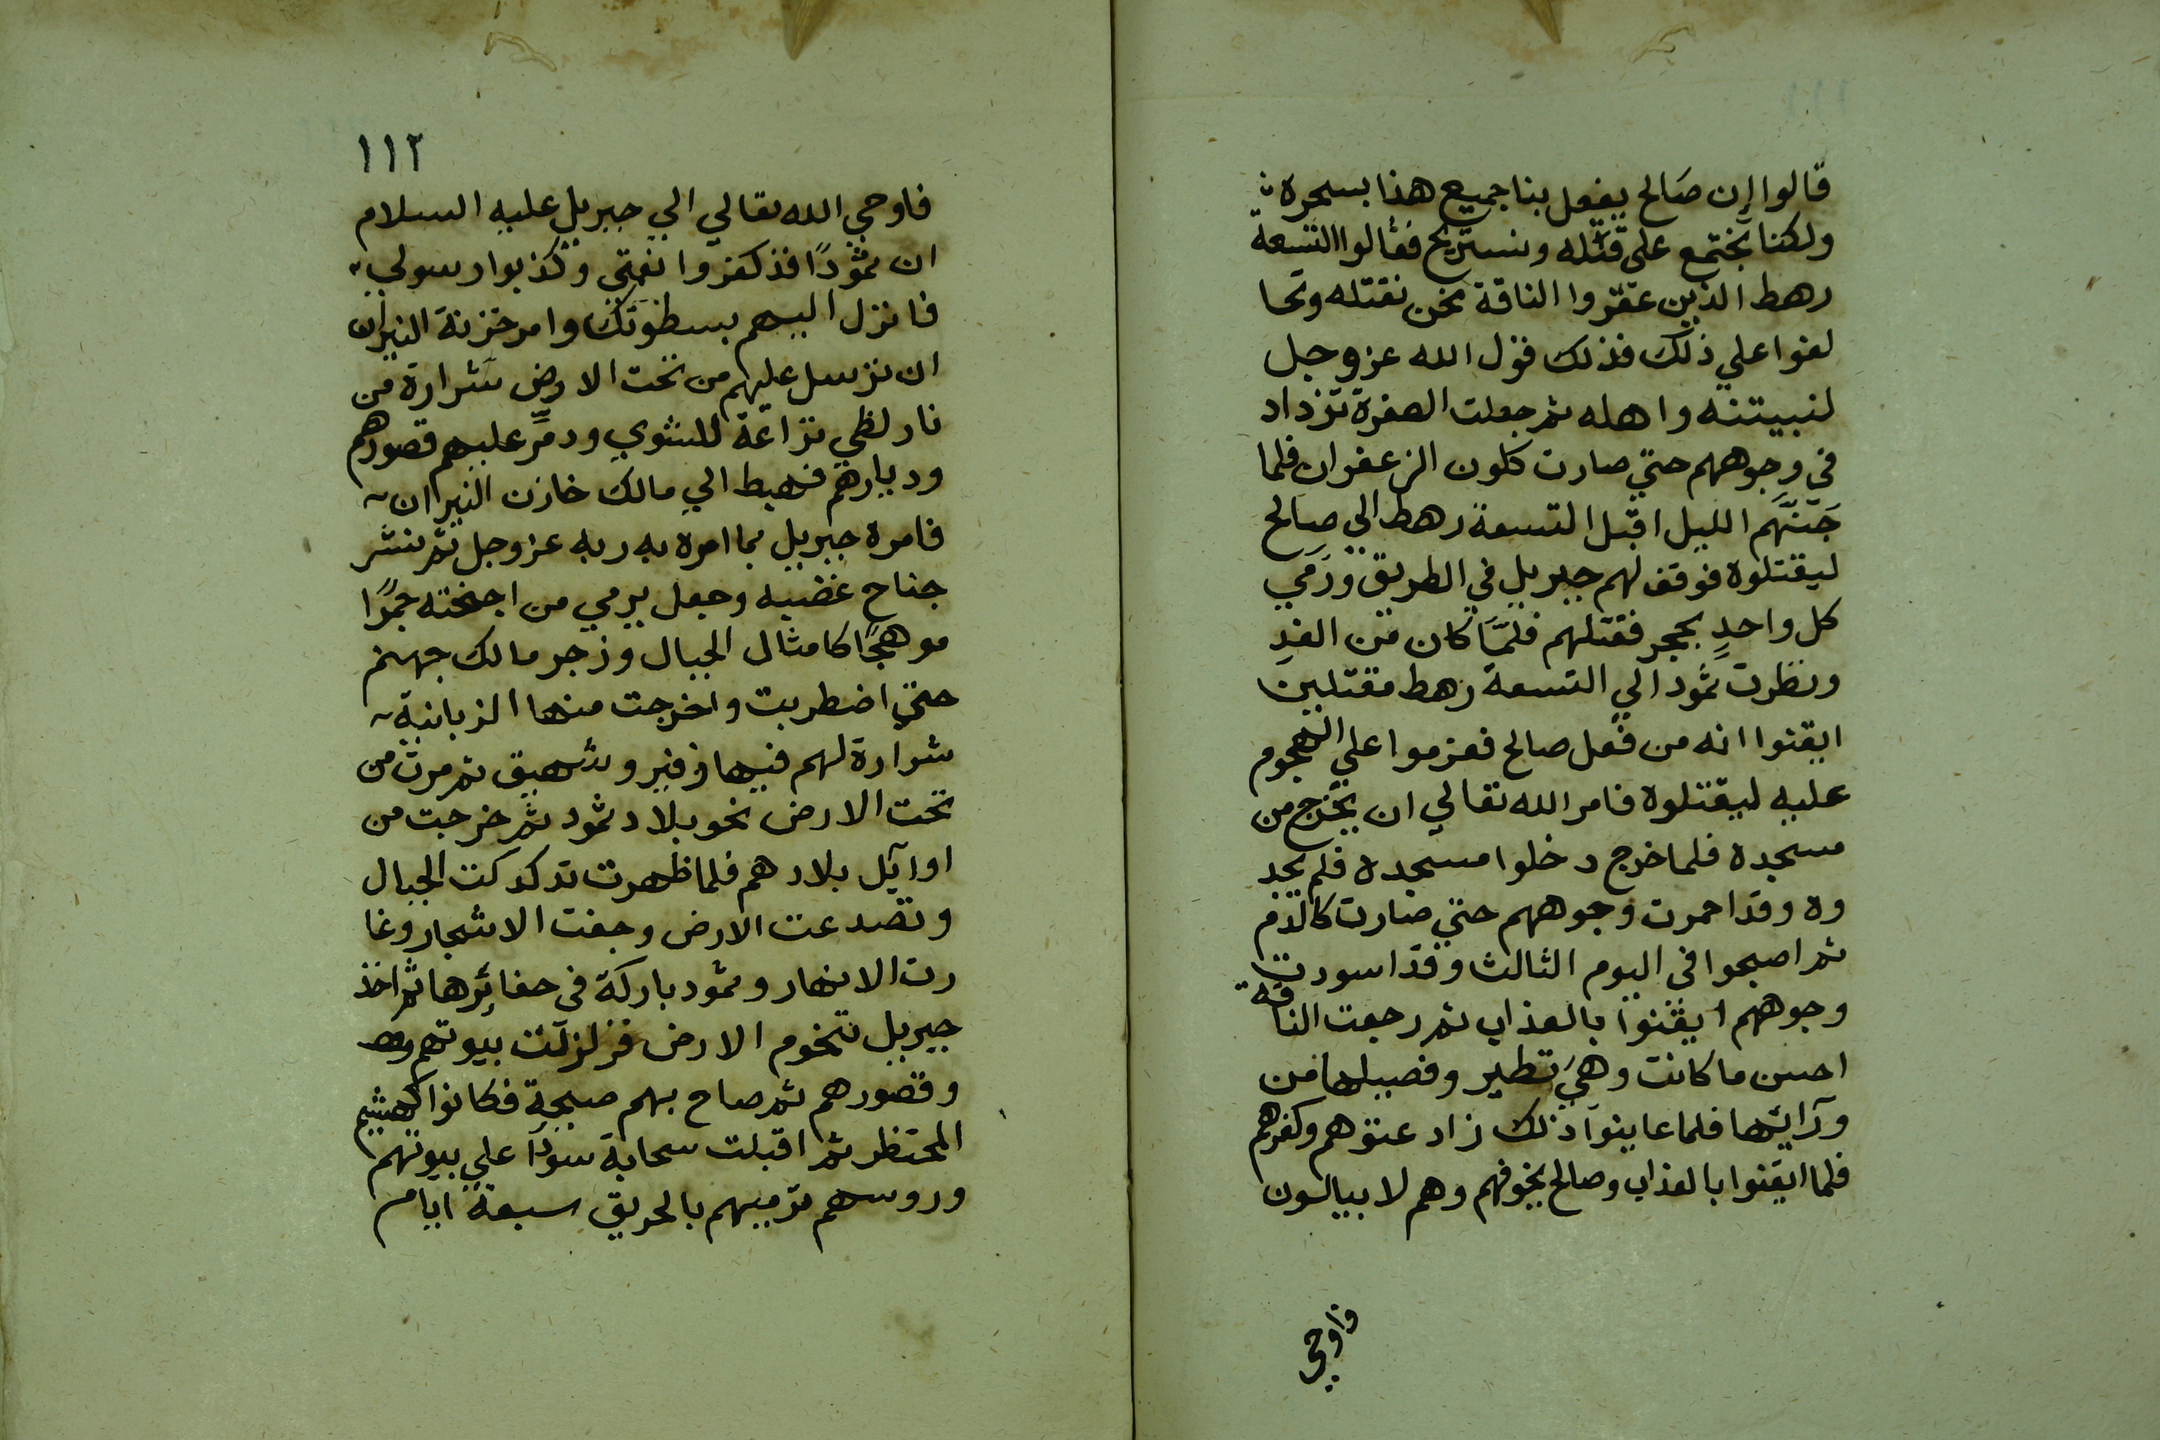 قالوا إن صالح يفعل بنا جميع هذا بسحره
ولكنا نجتمع على قتله ونستريح فقالوا التسعة
رهط الذين عقروا الناقة نحن نقتله وتحا
لفوا علي ذلك فذلك قول الله عز وجل
لنبيتنه واهله ثم جعلت الصفرة تزداد
في وجوههم حتي صارت كلون الزعفران فلما
جَنَّهم الليل اقبل التسعة رهط الي صالح
ليقتلوه فوقف لهم جبريل في الطريق ورَمي
كل واحدٍ بحجر فقتلهم فلمَّا كان من الغدِ
ونظرت ثمود الي التسعة رهط مقتلين
ايقنوا انه من فعل صالح فعزموا علي الهجوم
عليه ليقتلوه فامر الله تعالي ان يخرج من
مسجده فلما خرج دخلوا مسجده فلم يجد
وه وقد احمرت وجوههم حتي صارت كالدم
ثم اصبحوا في اليوم الثالث وقد اسودت
وجوههم ايقنوا بالعذاب ثم رجعت الناقة
احسن ما كانت وهي تطير وفصيلها من
ورآيها فلما عاينوا ذلك زاد عتوهم وكفرهم
فلما ايقنوا بالعذاب وصالح يخوفهم وهم لا يبالون
فاوحي
١١٢
فاوحي الله تعالي الي جبريل عليه السلام
ان ثمودًا قد كفروا نعمتي وكذبوا رسولي
فانزل اليهم بسطوتك وامر خزنة النيران
ان نرسل عليهم من تحت الارض شرارة من
نار لظي نزاعة للشوي ودمِّر عليهم قصورهم
وديارهم فهبط الي مالك خازن النيران
فامره جبريل بما امره به ربه عز وجل ثم نشر
جناح غضبه وجعل يرمي من اجنحته جمرًا
موهجًا كامثال الجبال وزجر مالك جهنم
حتي اضطربت واخرجت منها الزبانية
شرارة لهم فيها زفير وشهيق ثم مرت من
تحت الارض نحو بلاد ثمود ثم خرجت من
اوايل بلادهم فلما ظهرت تدكدكت الجبال
وتصدعت الارض وجفت الاشجار وغا
رت الانهار وثمود باركة في حفائرها ثم اخذ
جبريل بتخوم الارض فزلزلت بيوتهم
وقصورهم ثم صاح بهم صيحة فكانوا كهشيم
المحتظر ثم اقبلت سحابة سودآ علي بيوتهم
وروسهم ترميهم بالحريق سبعة ايام